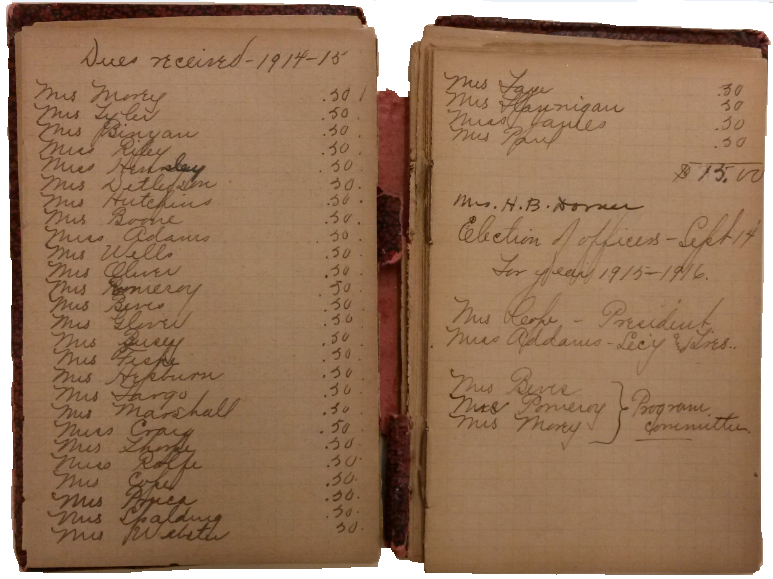 Dues received - 1914-15
Mrs Morey .50
Mrs Tyler .50
Mrs Binyan .50
Miss Riley .50
Miss Hensley .50
Mrs Detlefsen .50
Mrs Hutchins .50
Mrs Boone .50
Miss Adams .50
Mrs Wells .50
Mrs Oliver .50
Mrs Pomeroy .50
Mrs Bevis .50
Mrs Glover .50
Mrs Busey .50
Mrs Fiske .50
Mrs Hepburn .50
Mrs Fargo .50
Mrs Marshall .50
Miss Craig .50
Mrs .50
Miss Rolfe .50
Mrs Cope .50
Mrs .50
Mrs Spalding .50
Mrs Webster 50
Mrs .50
Mrs Flannigan .50
.50
Mrs .50
$15.00
Mrs. H. B. Dorner
Election of officers - Sept 14
For year 1915-1916.
Mrs Cope - President
Miss Addams - Sec'y & Tres..
Mrs Bevis
Mrs Pomeroy } Program
Mrs Morey committee.